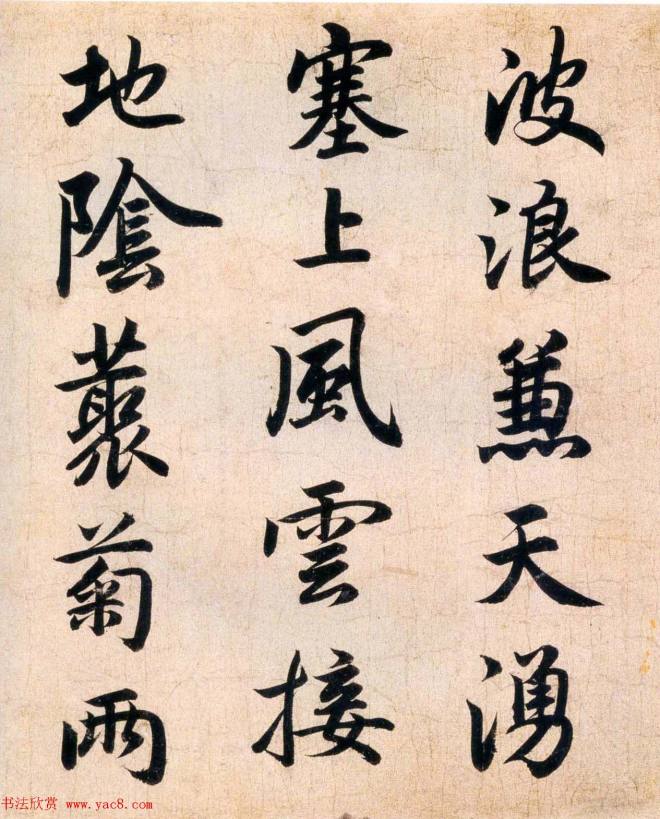 波浪兼天湧
塞上風雲接
地陰叢菊兩
书法欣赏 www.yac8.com